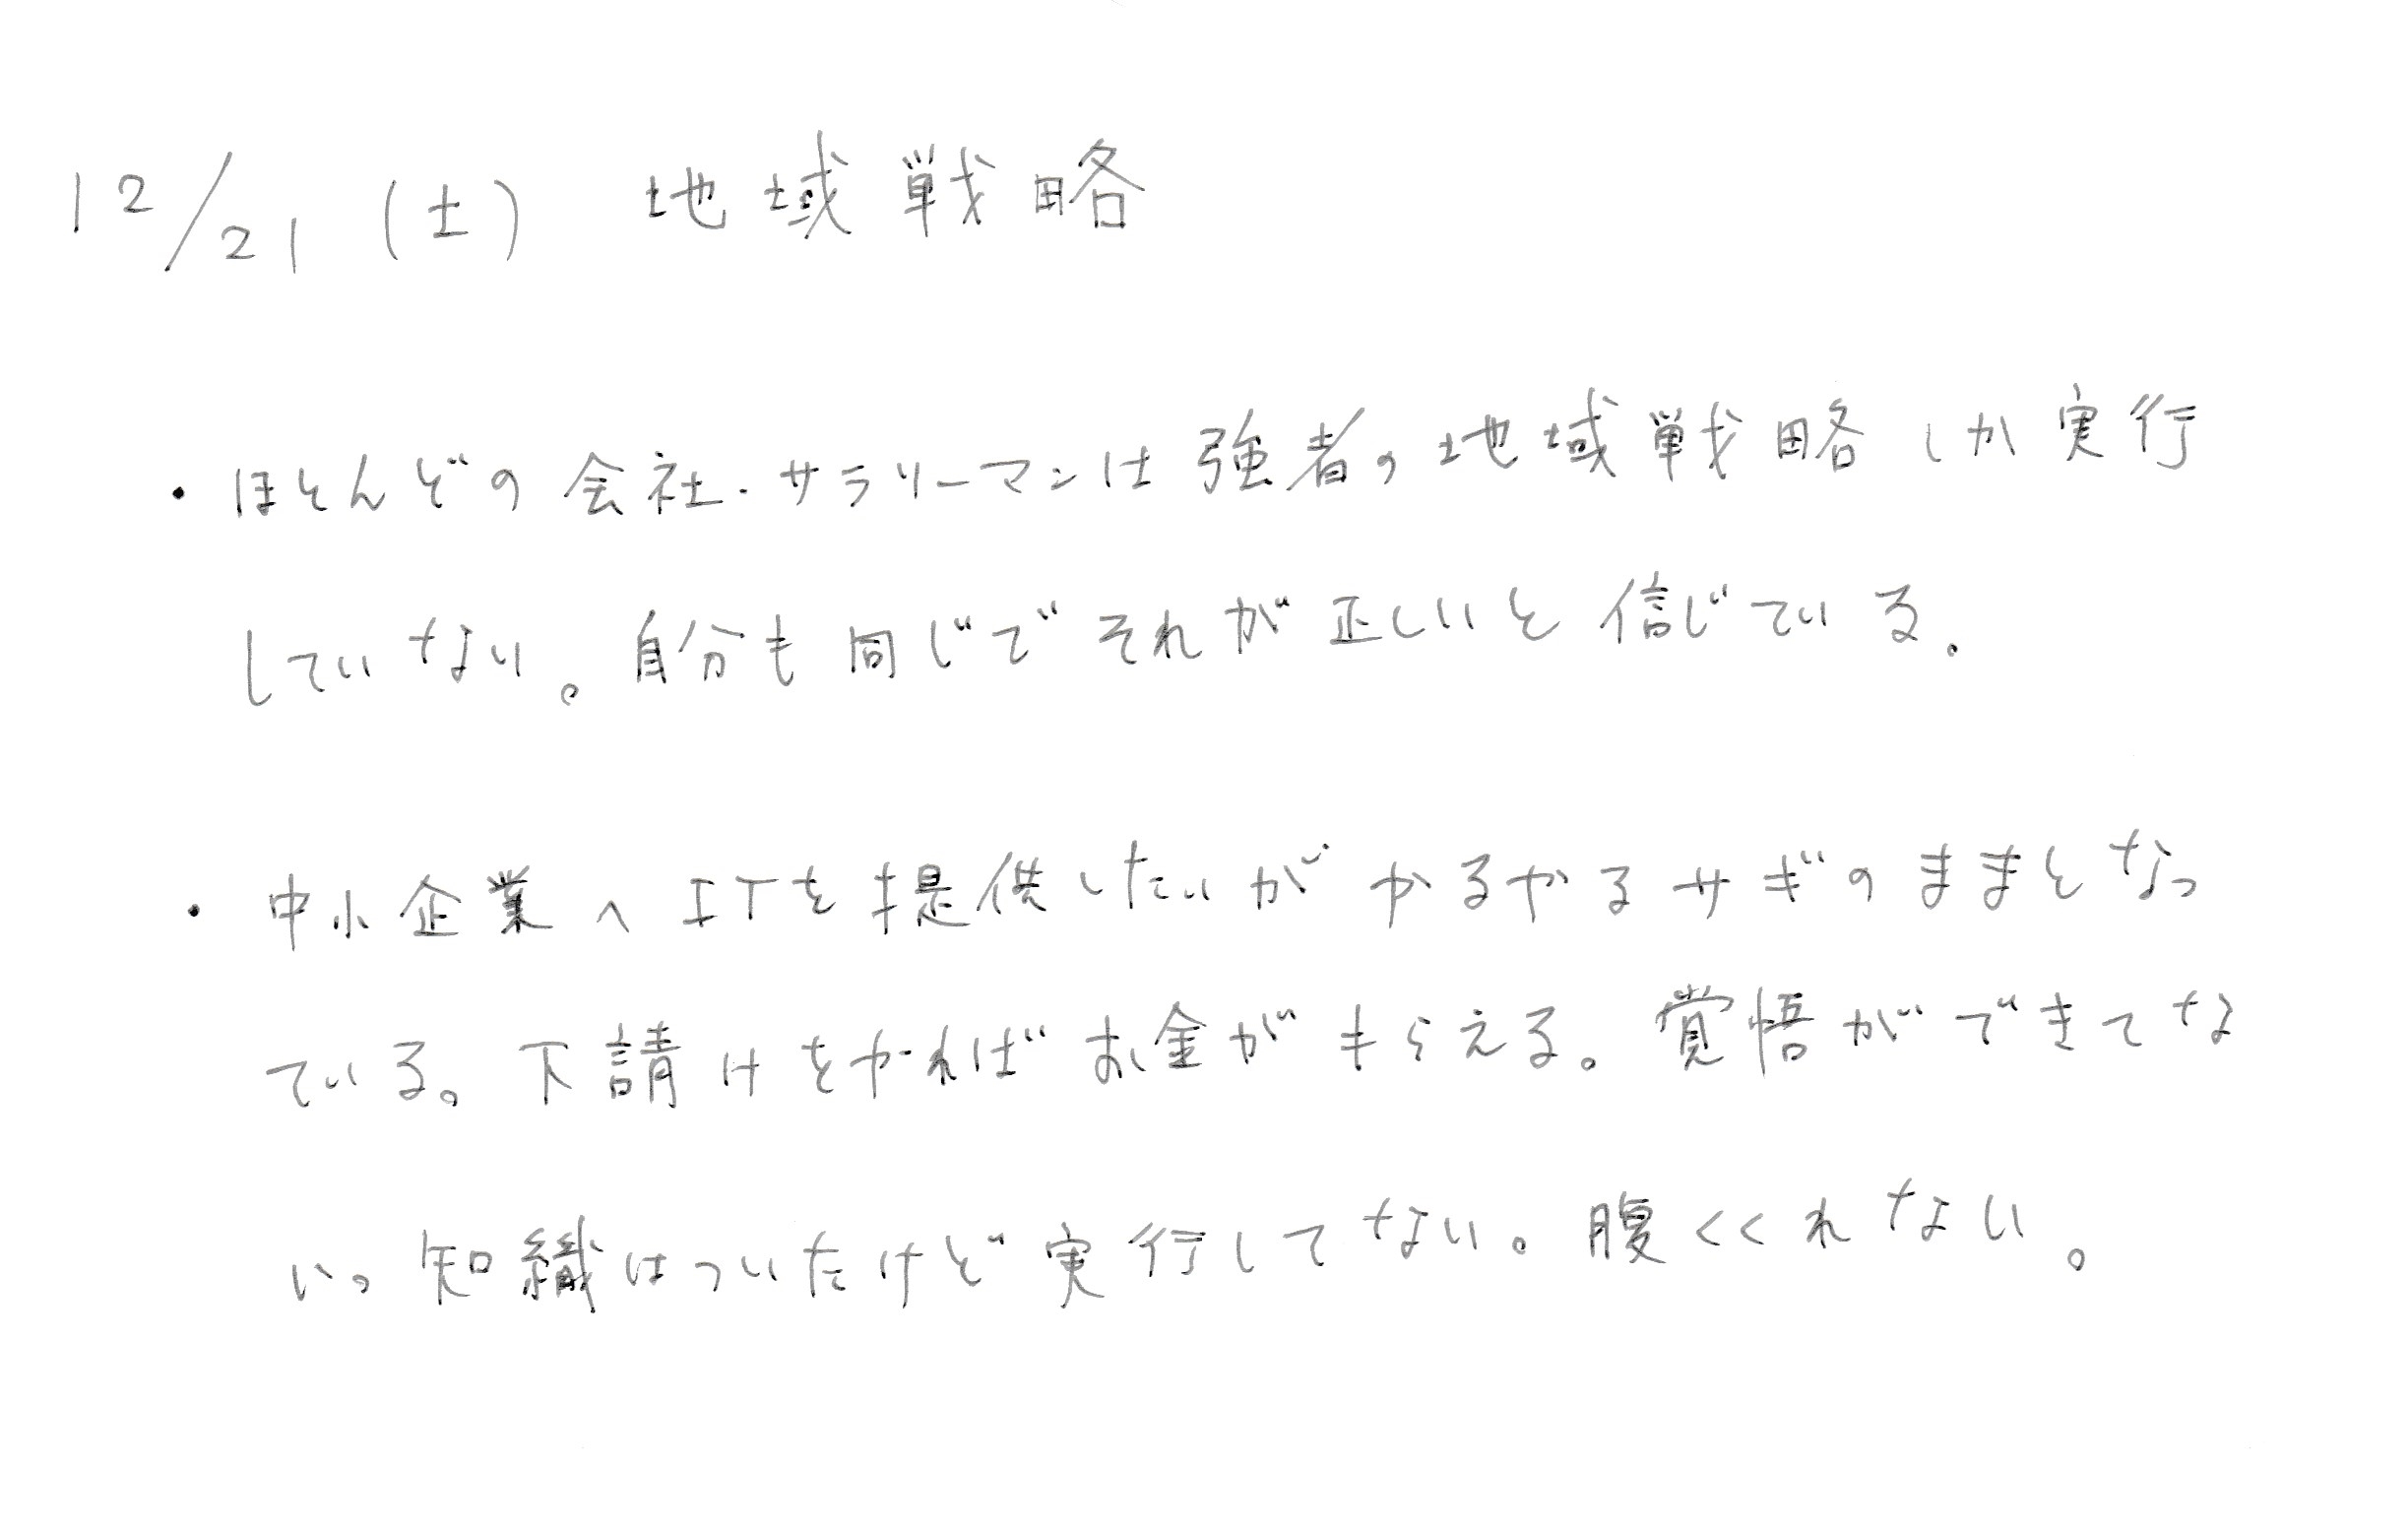 12/21 (土) 地域戦略
・ほとんどの会社・サラリーマンは強者の地域戦略しか実行
していない。自分も同じでそれが正しいと信じている.
・中小企業へITを提供したいがやるやるサギのままとなっ
ている。下請けをやればお金がもらえる。覚悟ができてな
い。知織はついたけど実行してない。腹くくれない。